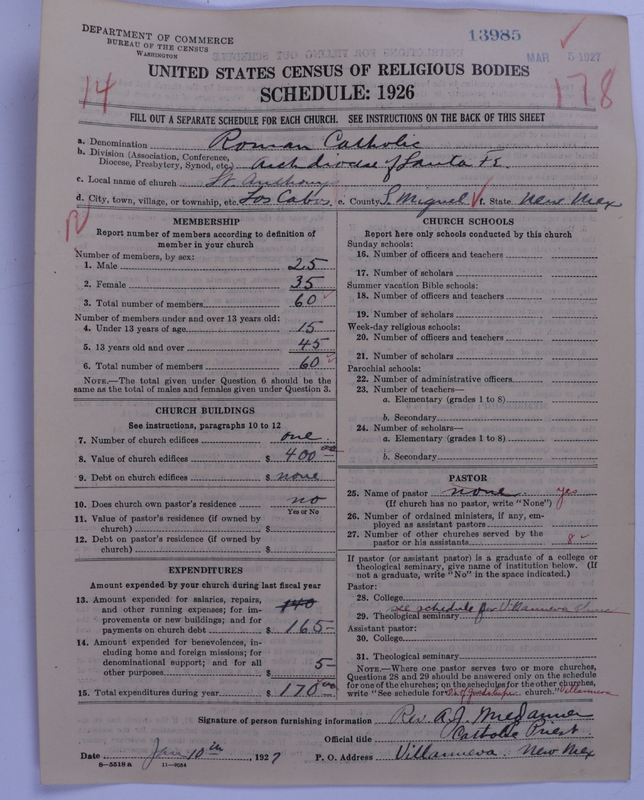 DEPARTMENT OF COMMERCE
BUREAU OF THE CENSUS
WASHINGTON
13985
MAR 5 1927
UNITED STATES CENSUS OF RELIGIOUS BODIES
SCHEDULE: 1926
14
178
FILL OUT A SEPARATE SCHEDULE FOR EACH CHURCH. SEE INSTRUCTIONS ON THE BACK OF THIS SHEET
a. Denomination Roman Catholic
b. Division (Association, Conference, Diocese, Presbytery, Synod, etc.) Archdiocese of Santa Fe.
c. Local name of church St. Anthony
d. City, town, village, or township, etc. Los Cabos. e. County S. Miguel f. State New Mex
MEMBERSHIP
Report number of members according to definition of
member in your church
Number of members, by sex:
1. Male 25
2. Female 35
3. Total number of members 60
Number of members under and over 13 years old:
4. Under 13 years of age 15
5. 13 years old and over 45
6. Total number of members 60
NOTE.—The total given under Question 6 should be
same as the total of males and females given under Question 3.
CHURCH BUILDINGS
See instructions, paragraphs 10 to 12
7. Number of church edifices one
8. Value of church edifices $ 400.00
9. Debt on church edifices $ none
10. Does church own pastor's residence no
Yes or No
11. Value of pastor's residence (if owned by
church) $
12. Debt on pastor's residence (if owned by
church) $
EXPENDITURES
Amount expended by your church during last fiscal year
13. Amount expended for salaries, repairs,
and other running expenses; for im-
provements or new buildings; and for
payments on church debt $ 140 165-
14. Amount expended for benevolences, in-
cluding home and foreign missions; for
denominational support; and for all
other purposes $ 5-
15. Total expenditures during year $ 170.00
CHURCH SCHOOLS
Report here only schools conducted by this church
Sunday schools:
16. Number of officers and teachers
17. Number of scholars
Summer vacation Bible schools:
18. Number of officers and teachers
19. Number of scholars
Week-day religious schools:
20. Number of officers and teachers
21. Number of scholars
Parochial schools:
22. Number of administrative officers
23. Number of teachers—
a. Elementary (grades 1 to 8)
b. Secondary
24. Number of scholars—
a. Elementary (grades 1 to 8)
b. Secondary
PASTOR
25. Name of pastor none yes
(If church has no pastor, write "None")
26. Number of ordained ministers, if any, em-
ployed as assistant pastors
27. Number of other churches served by the
pastor or his assistants 8
If pastor (or assistant pastor) is a graduate of a college or
theological seminary, give name of institution below. (If
not a graduate, write "No" in the space indicated.)
Pastor:
28. College
see schedule for Villanueva church
29. Theological seminary
Assistant pastor:
30. College
31. Theological seminary
NOTE.—Where one pastor serves two or more churches,
Questions 28 and 29 should be answered only on the schedule
for one of the churches; on the schedules for the other churches,
write "See schedule for church." Villanueva
Signature of person furnishing information Rev. A. J.
Official title Catholic Priest
Date Jan 10th, 1927 P. O. Address Villanueva. New Mex
8-5518a 11-9034